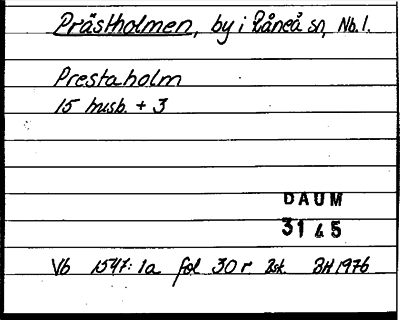 Prästholmen, by i Råneå sn, Nb.l.
Prestaholm
15 husb. + 3
DAUM
3145
Vb 1547:1a fol 30r 2sk. BH 1976